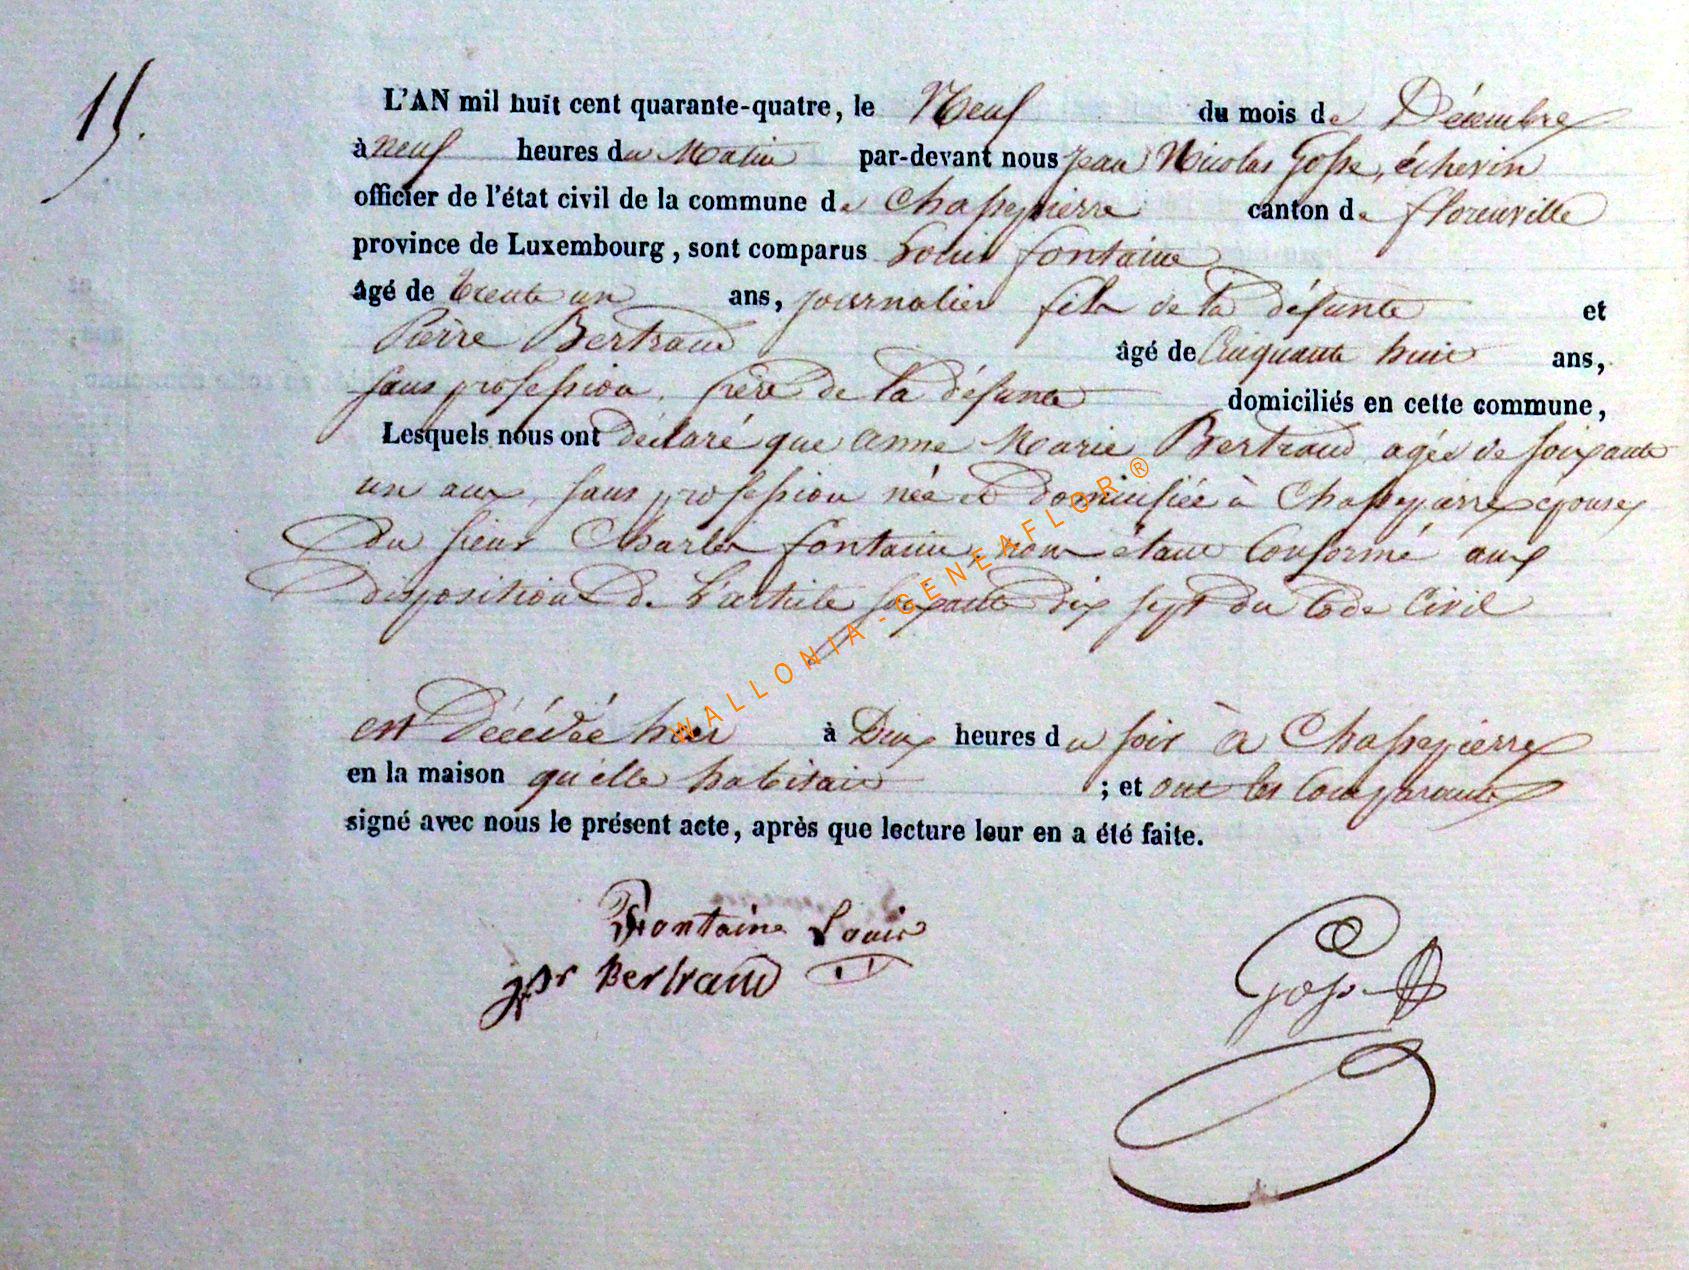 15.
L'AN mil huit cent quarante-quatre, le Neuf du mois de Décembre
à neuf heures du Matin par-devant nous Jean Nicolas Gosse, échevin
officier de l'état civil de la commune de Chassepierre canton de florenville
province de Luxembourg, sont comparus Louis fontaine
âgé de trente un ans, journalier fils de la défunte et
Pierre Bertrand âgé de Cinquante huit ans,
sans profession, frère de la défunte domiciliés en cette commune,
Lesquels nous ont déclaré que anne Marie Bertrand agée de soixante
un ans, sans profession née et domiciliée à Chassepierre épouse
du sieur Charles fontaine, nous étant Conformé aux
dispositions de L'article soixante dix sept du Code Civil
est Décédée hier à Deux heures du soir à Chassepierre
en la maison qu'elle habitait ; et ont les Comparants
signé avec nous le présent acte, après que lecture leur en a été faite.
Fontaine Louis
Bertrand
Gosse
WALLONIA-GENEAFLOR®